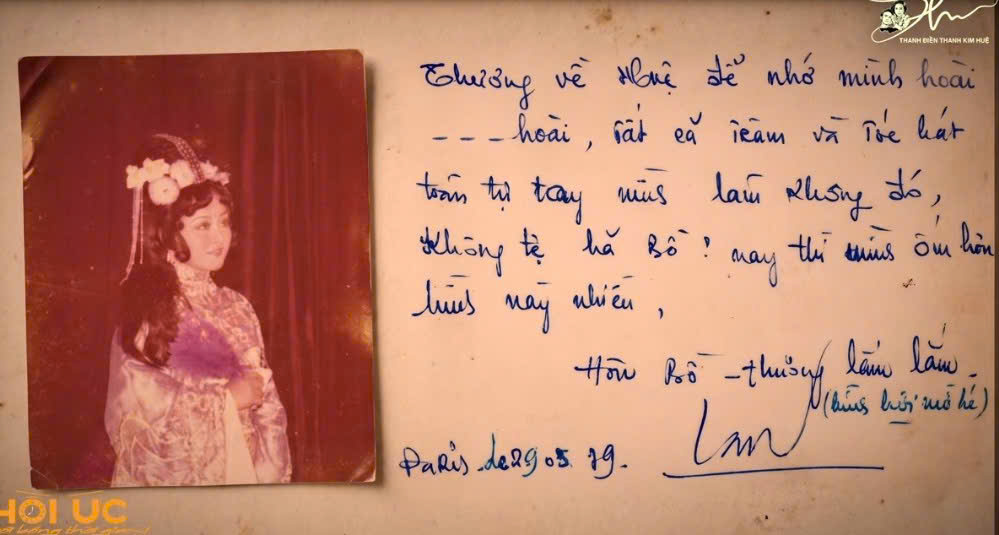 THANH ĐIỀN THANH KIM HUỆ
Thương về Huệ để nhớ mình hoài
---hoài, tất cả trâm và tóc hát
toàn tự tay mình làm không đó,
Không tệ hả Bồ! nay thì mình ốm hơn
hình này nhiều,
Hôn Bồ - thương lắm lắm.
(hình hơi mờ hé)
Lan
Paris le 29 05 79.
HỒI ỨC